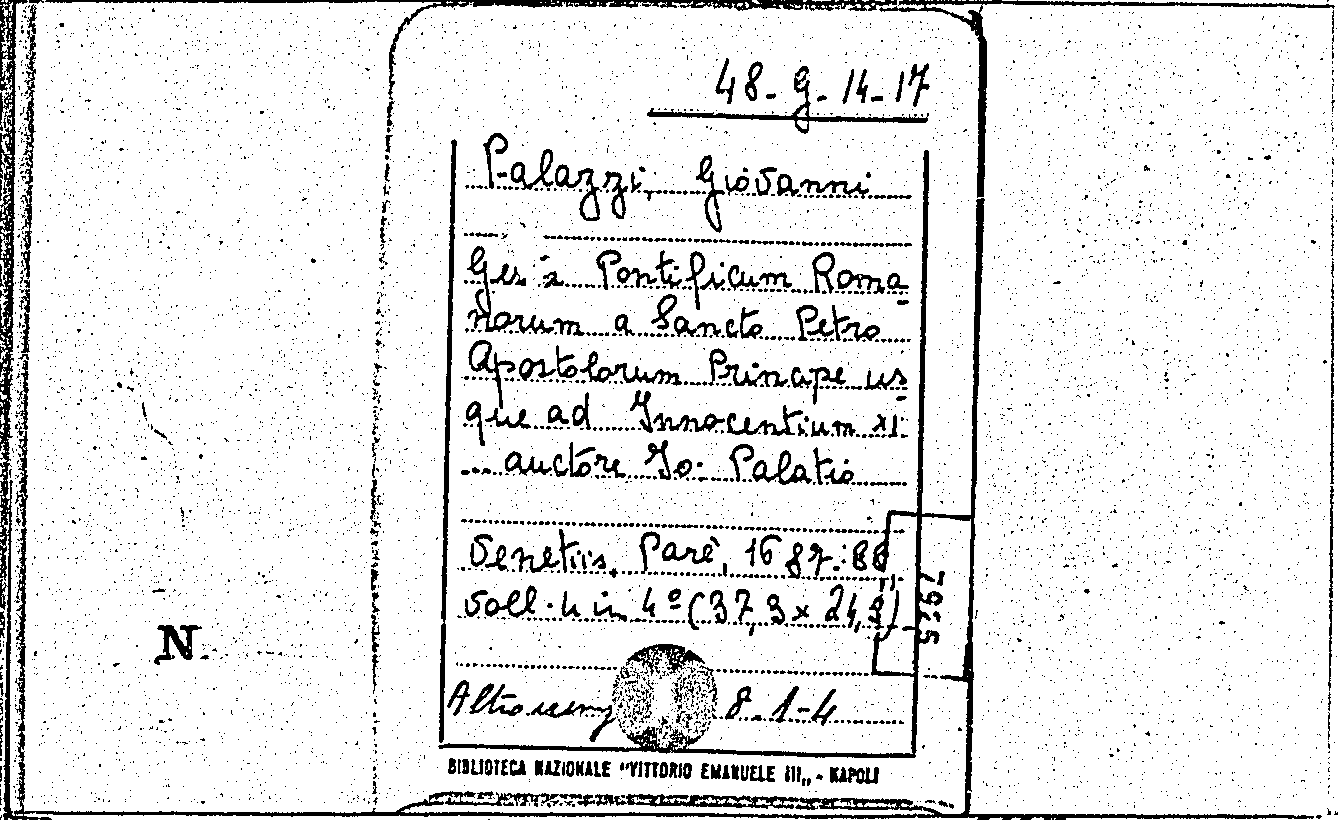 48-G-14-17
Palazzi, Giovanni
Pontificum Roma-
norum a Sancto Petro
Apostolorum Principe us-
que ad Innocentium XI
... auctore Jo: Palatio
Venetiis, Parè, 1687-88
Voll. 4 in 4º (37,3 x 24,3)
Altro 8-1-4
BIBLIOTECA NAZIONALE "VITTORIO EMANUELE III„ - NAPOLI
N